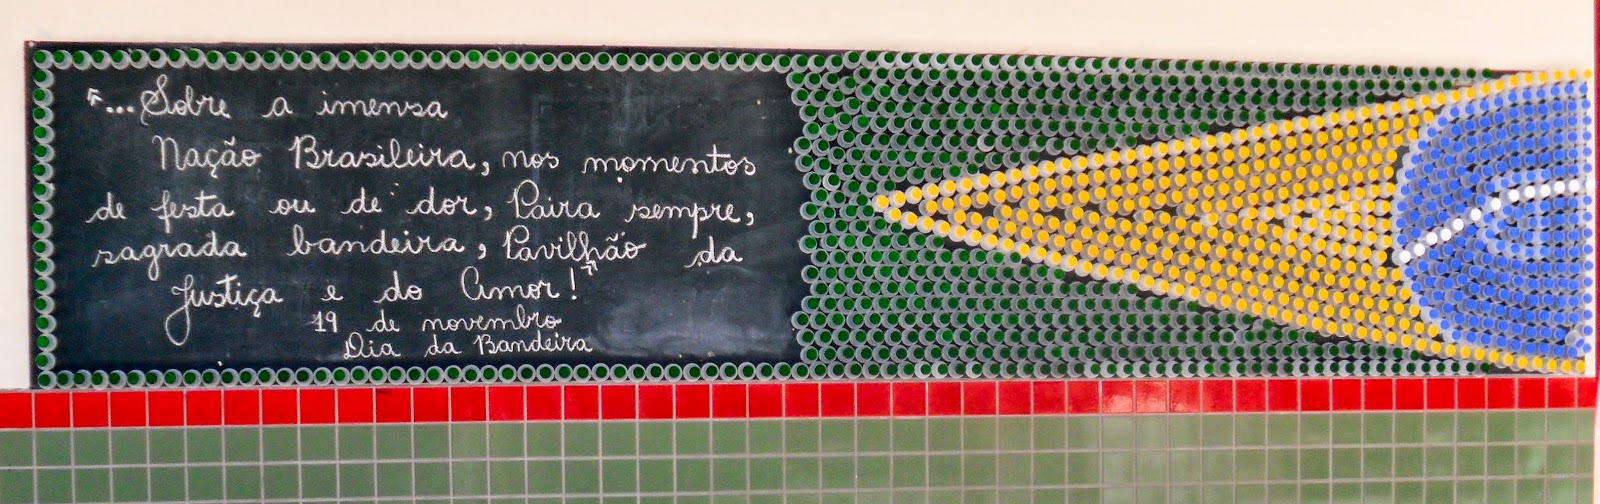 "...Sobre a imensa
Nação Brasileira, nos momentos
de festa ou de dor, Paira sempre,
sagrada bandeira, Pavilhão da
Justiça e do Amor!"
19 de novembro
Dia da Bandeira